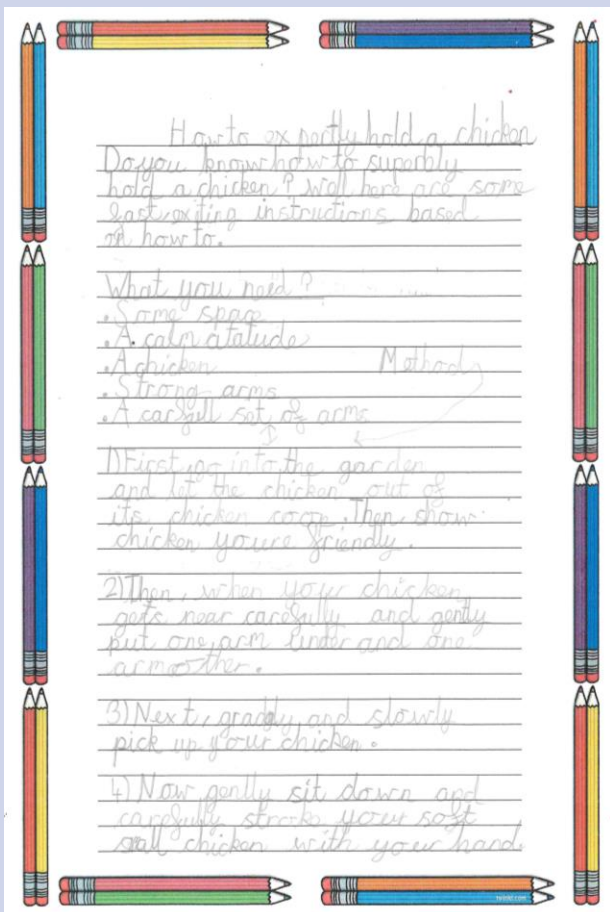 How to expertly hold a chicken
Do you know how to superbly
hold a chicken? Well here are some
fast, exiting instructions based
on how to.
What you need?
• Some space
• A calm atatude
• A chicken
Method
• Strong arms
• A carfull set of arms
1) First, go into the garden
and let the chicken out of
its chicken coop. Then, show
chicken youre friendly.
2) Then, when your chicken
gets near carefully and gently
put one arm under and one
arm other.
3) Next, and slowly
pick up your chicken.
4) Now gently sit down and
carefully stroke your soft
small chicken with your hand.
twinkl.com